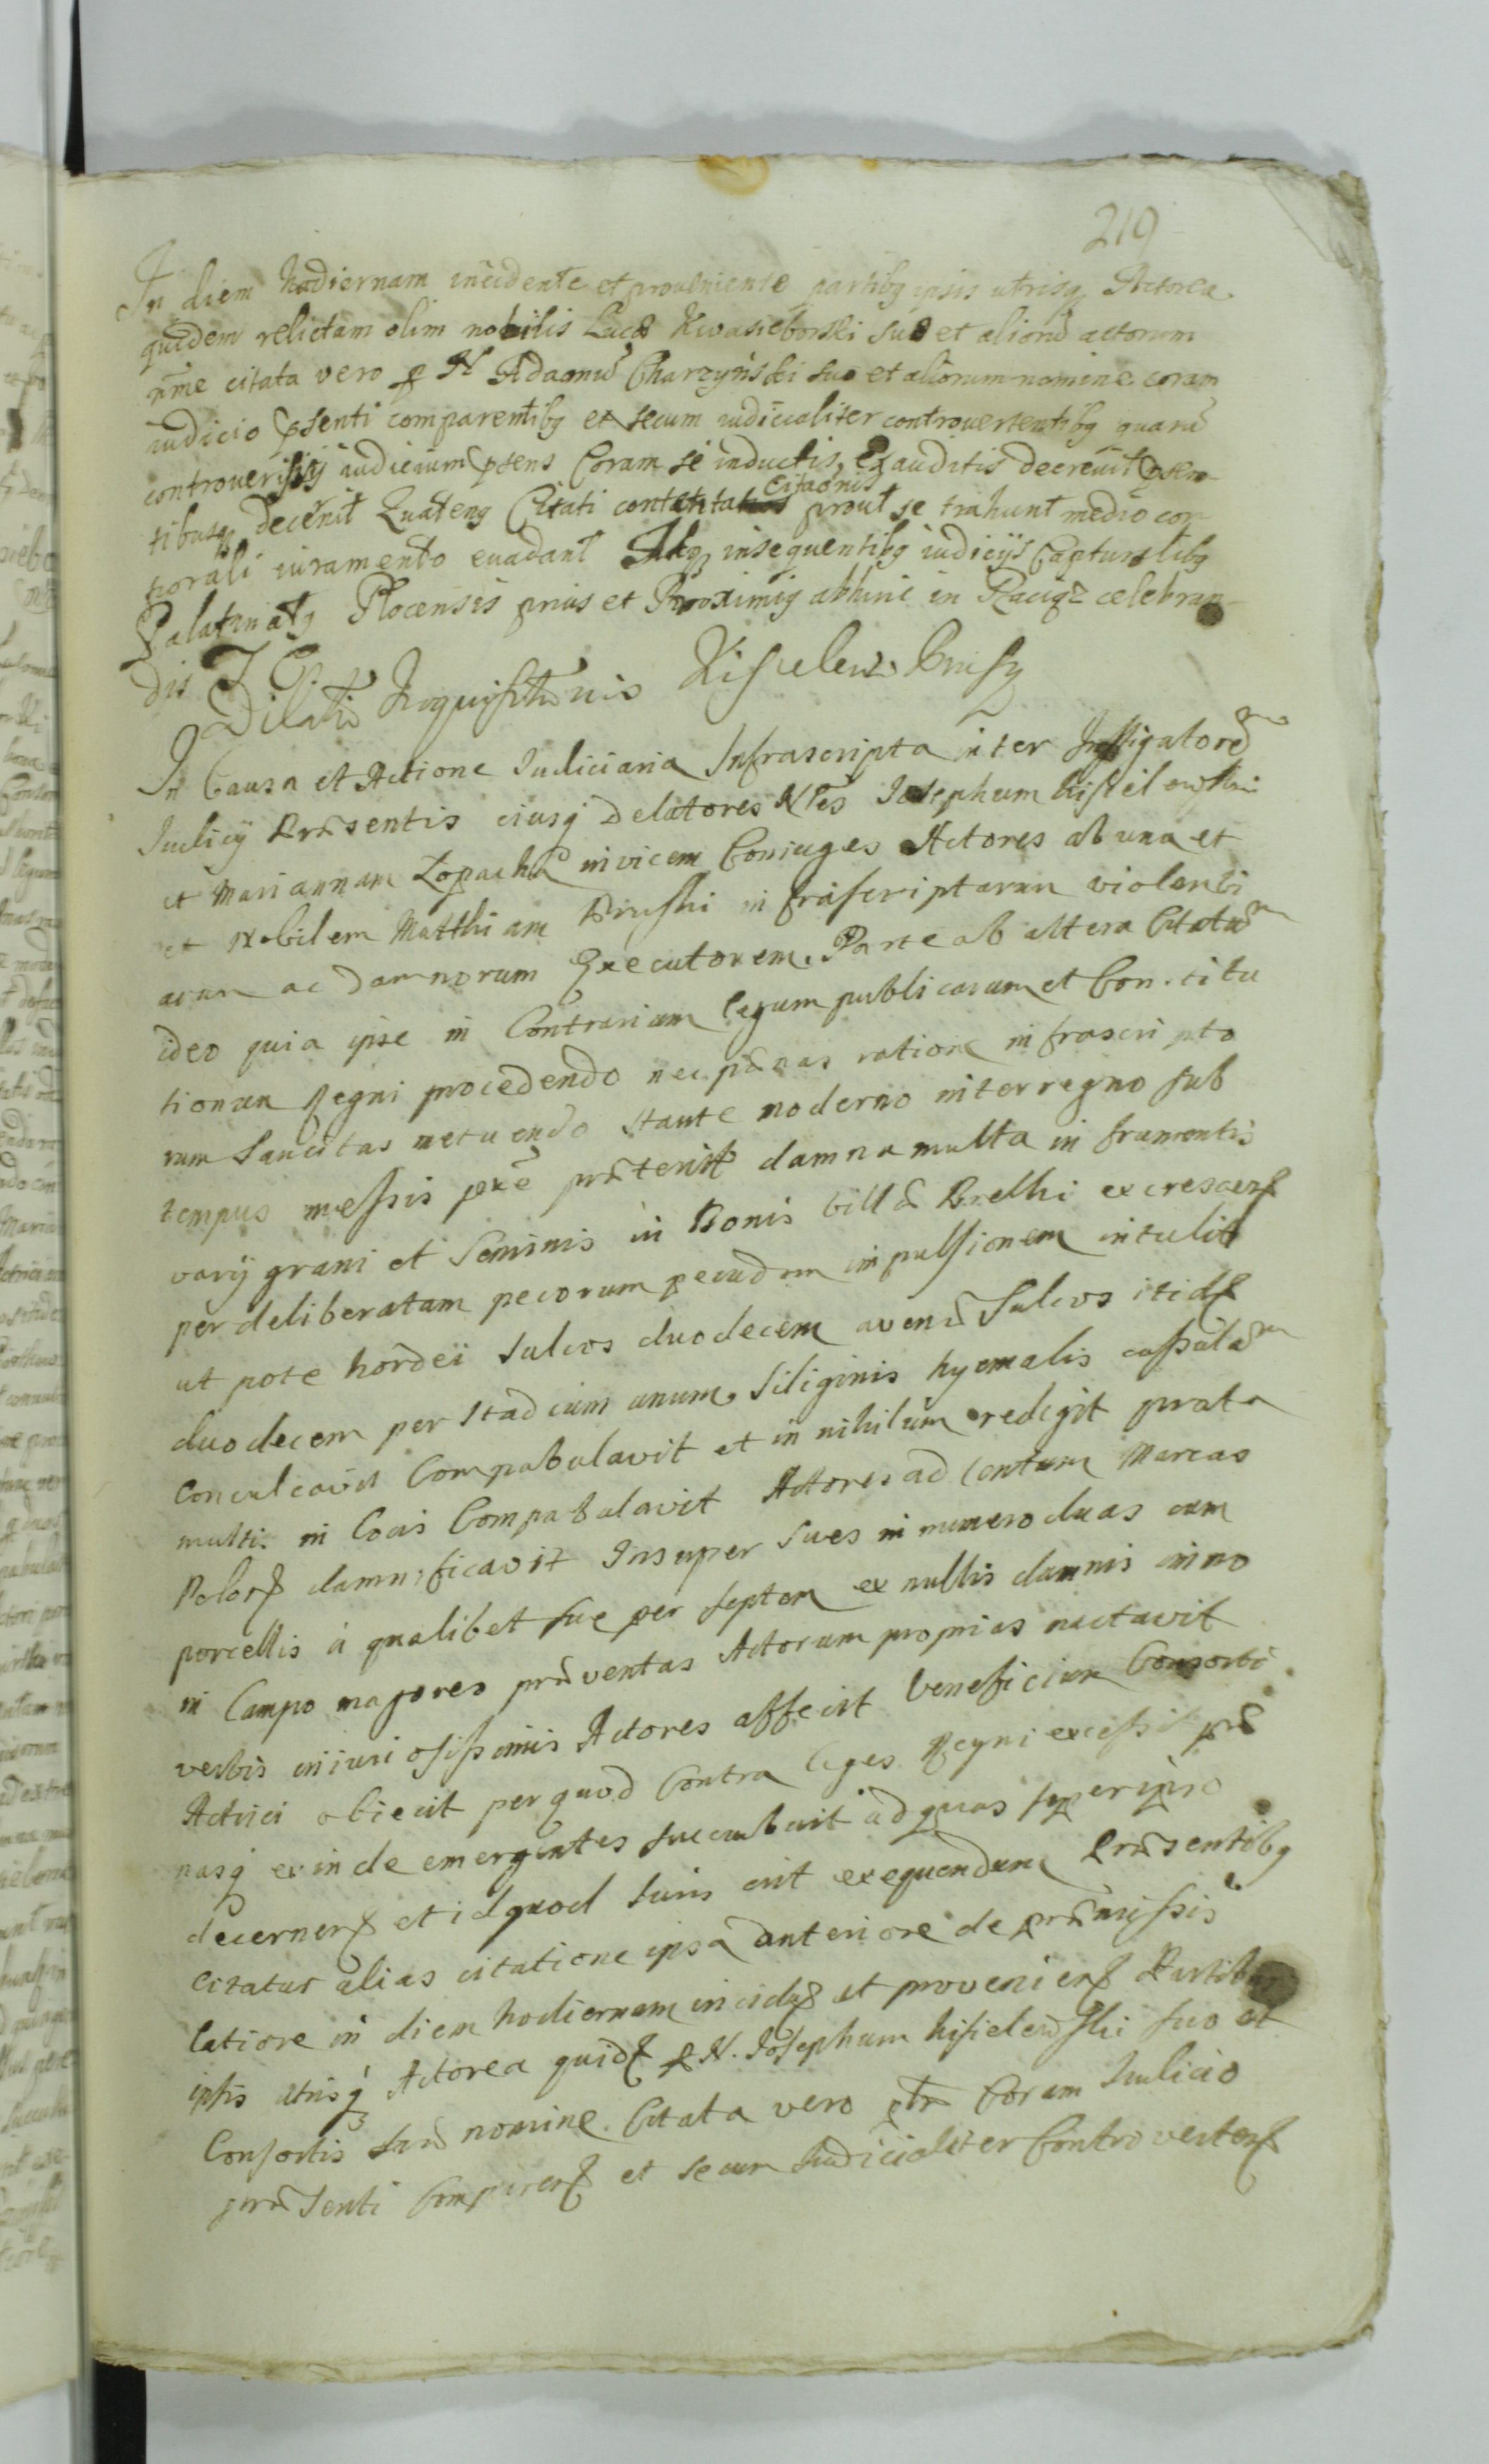 219
In diem hodiernam incidente et proveniente partibq ipsis utrisq Actorea
quidem relictam olim nobilis Lucæ Kwasieborski suo et aliorũ actorum
nõme citata vero p N Adamũ Charzyński suo et aliorum nomine coram
iudicio p̃senti comparentibq et secum iudicialiter controvertentibq quarũ
controversijs iudicium p̃sens Coram se inductis, exauditis decrevit
tibusq decernit Quatenq Citati Citaõnis prout se trahunt medio cor-
porali iuramento evadant insequentibq iudicijs Capturalibq
Palatinatq Plocensis prius et Proximiq abhinc in Raciąz celebran-
dis
Dilatio Inquisitionis
In Causa et Actione Iudiciaria Infrascripta inter Instigatorẽ
Iudicij Præsentis eiusq delatores Nles Josephum Kisielewski
et Mariannam Lopacka invicem Coniuges Actores ab una et
et Nobilem Matthiam Bruski infrascriptarum violenti
arum ac damnorum Executorem. Parte ab altera Citatũ
ideo quia ipse in Contrarium legum publicarum et Constitu
tionum Regni procedendo nec pænas ratione infrascripto
rum Sancitas metuendo stante moderno interregno sub
tempus messis præterit damna multa in frumentis
varij grani et Seminis in Bonis villæ Brelki
per deliberatam pecorum pecudum impulsionem intulit
ut pote hordei sulcos duodecem avenæ Sulcos itid
duodecem per stadium unum, Siliginis hyemalis
Conculcavit Compabulavit et in nihilum redigit prata
multis in Locis Compabulavit Actores ad Centum Marcas
Polon damnificavit Insuper Sues in numero duas cum
porcellis à qualibet sue per septem ex nullis damnis imno
in Campo majores præventas Actorum proprias mactavit
verbis iniuriosissimis Actores affecit
Actrici obiecit per quod Contra leges Regni excessit pæ
nasq exinde emergentes succubuit ad quas super ipso
decernen et id quod Iuris erit exequendum Præsentibq
citatus alias citatione ipsa anteriore de præmissis
latiore in diem hodiernam incid et provenien Partibus
ipsis utrisq Actorea quid p N. Josephum Kisielewski suo et
Consortis suæ nomine. Citata vero Coram Iudicio
præsenti Comparen et secum Iudicialiter Controverten